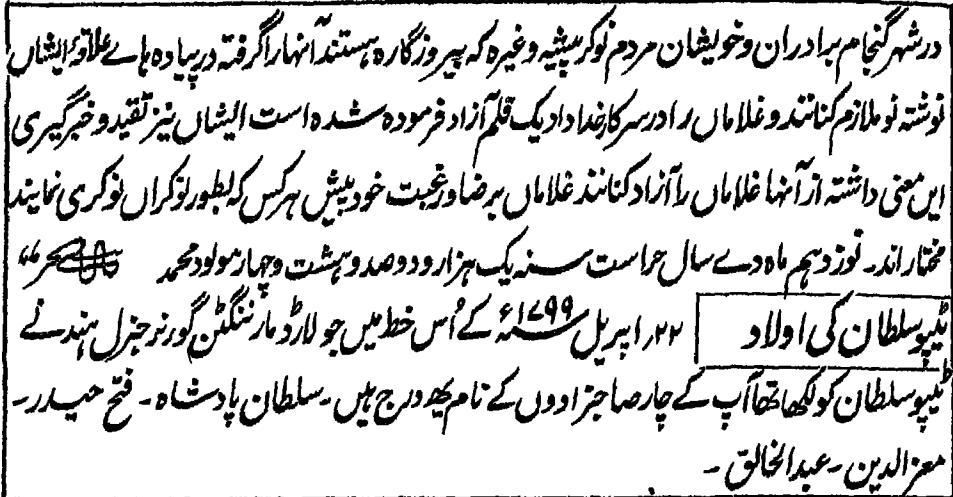 در شہر گنجام برادران و خویشان مردم نوکر پیشہ وغیرہ کہ پیروزگارہ ہستند آنہا را گرفتہ در پیادہ ہاے علاقہ ایشاں
نوشتہ نو ملازم کنانند و غلاماں را در سرکار خداداد یک قلم آزاد فرمودہ شدہ است ایشاں نیز تقید و خبرگیری
ایں معنی داشتہ از آنہا غلاماں را آزاد کنانند غلاماں برضا و رغبت خود پیش ہر کس کہ بطور نوکراں نوکری نمایند
مختار اند۔ نوزدہم ماہ دے سال حراست سنہ یک ہزار و دو صد و ہشت و چہار مولود محمد
ٹیپو سلطان کی اولاد ۲۲؍ اپریل ۱۷۹۹ء کے اُس خط میں جو لارڈ مارننگٹن گورنر جنرل ہند نے
ٹیپو سلطان کو لکھا تھا آپ کے چار صاحبزادوں کے نام یہ درج ہیں۔ سلطان پادشاہ۔ فتح حیدر۔
معزالدین۔ عبدالخالق۔